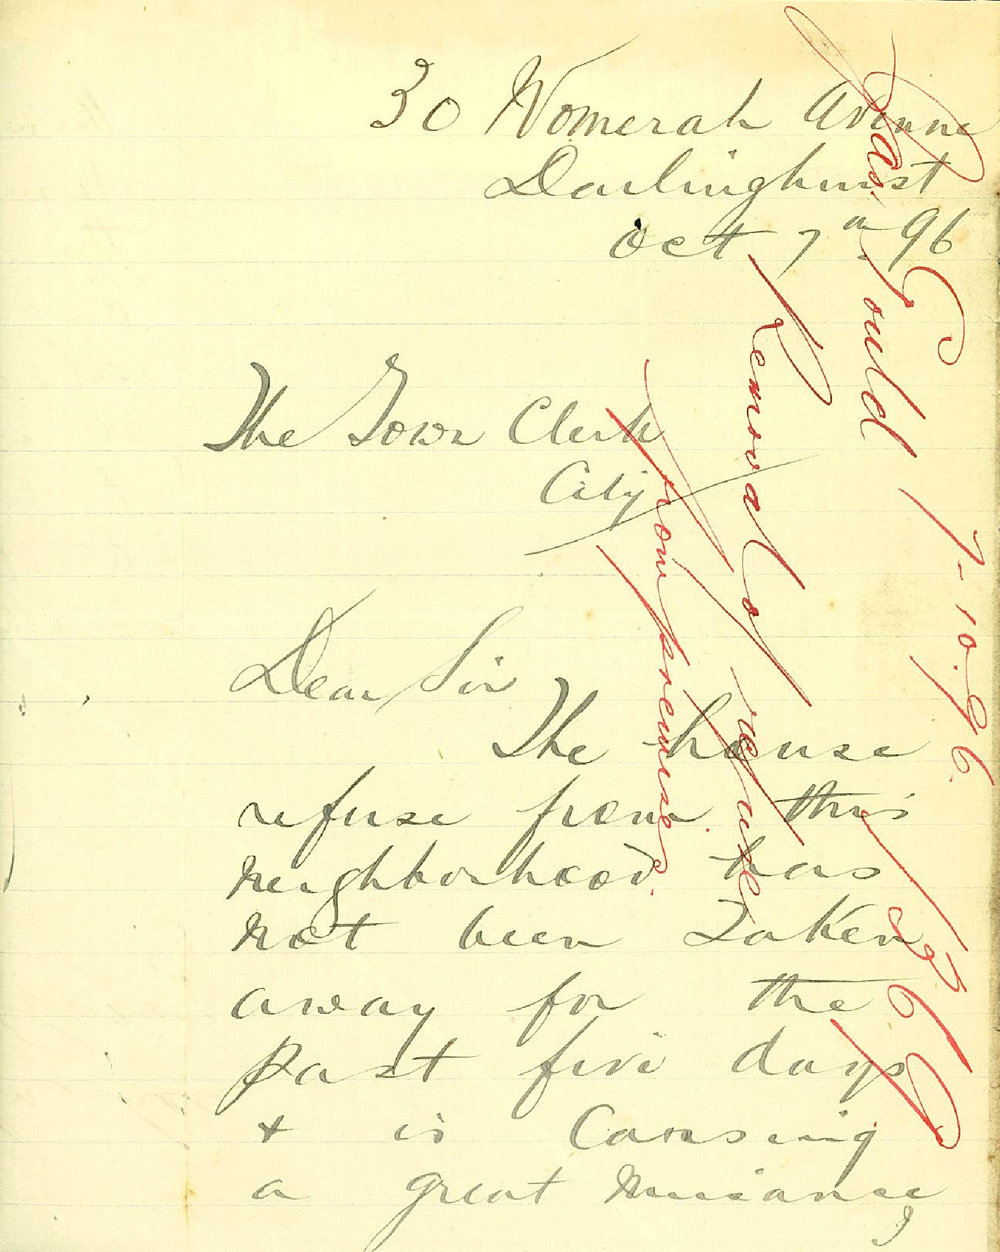 30 Womerah Avenue
Darlinghurst
Oct 7th 96
The Town Clerk
City
Dear Sir
The house
refuse from this
neighborhood has
not been Taken
away for the
past five days
& is Caussing
a great nuisance
Jas. Gould 7-10.96.
Removal of refuse
from premises.